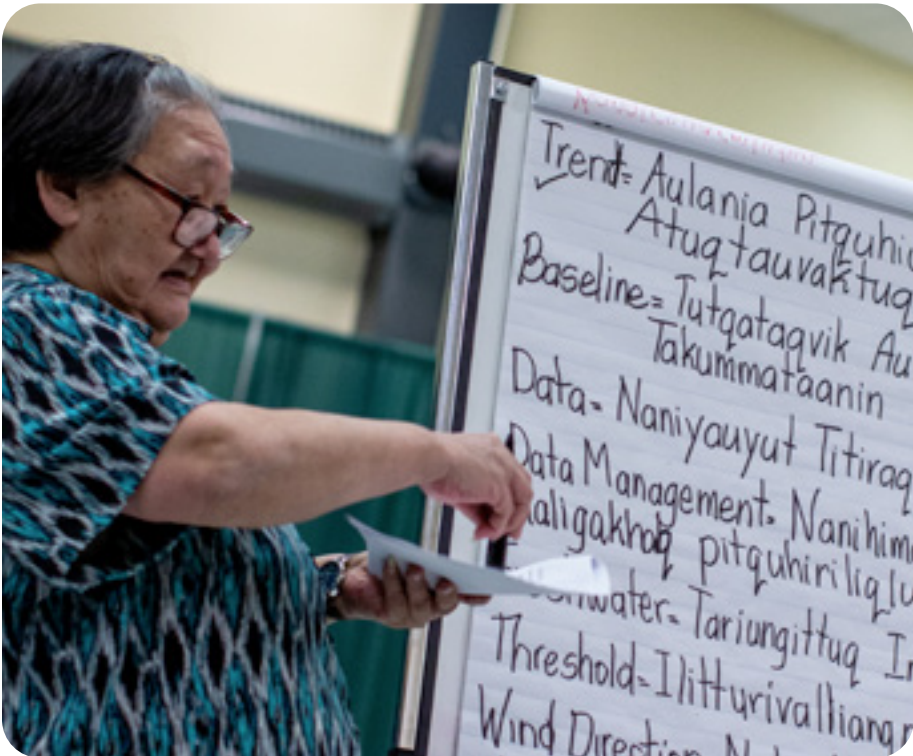 Trend= Aulania Pitquhi
Atuqtauvaktuq
Baseline= Tutqataqvik Au
Takummataanin
Data= Naniyauyut Titiraq
Data Management= Nanihim
pitquhiriliqlu
Tariungittuq
Threshold= Ilitturivalliang
Wind Direction